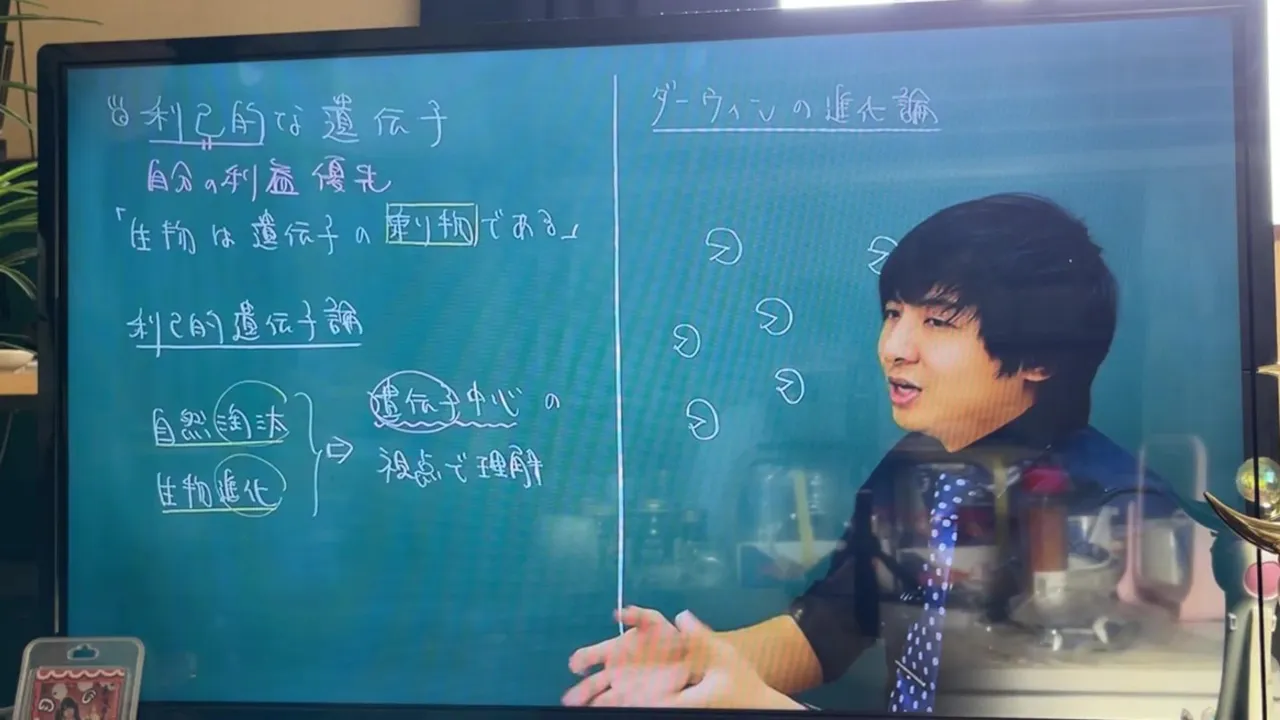 利己的な遺伝子
自分の利益優先
「生物は遺伝子の乗り物である」
利己的遺伝子論
自然淘汰
生物進化
⇨
遺伝子中心の
視点で理解
ダーウィンの進化論